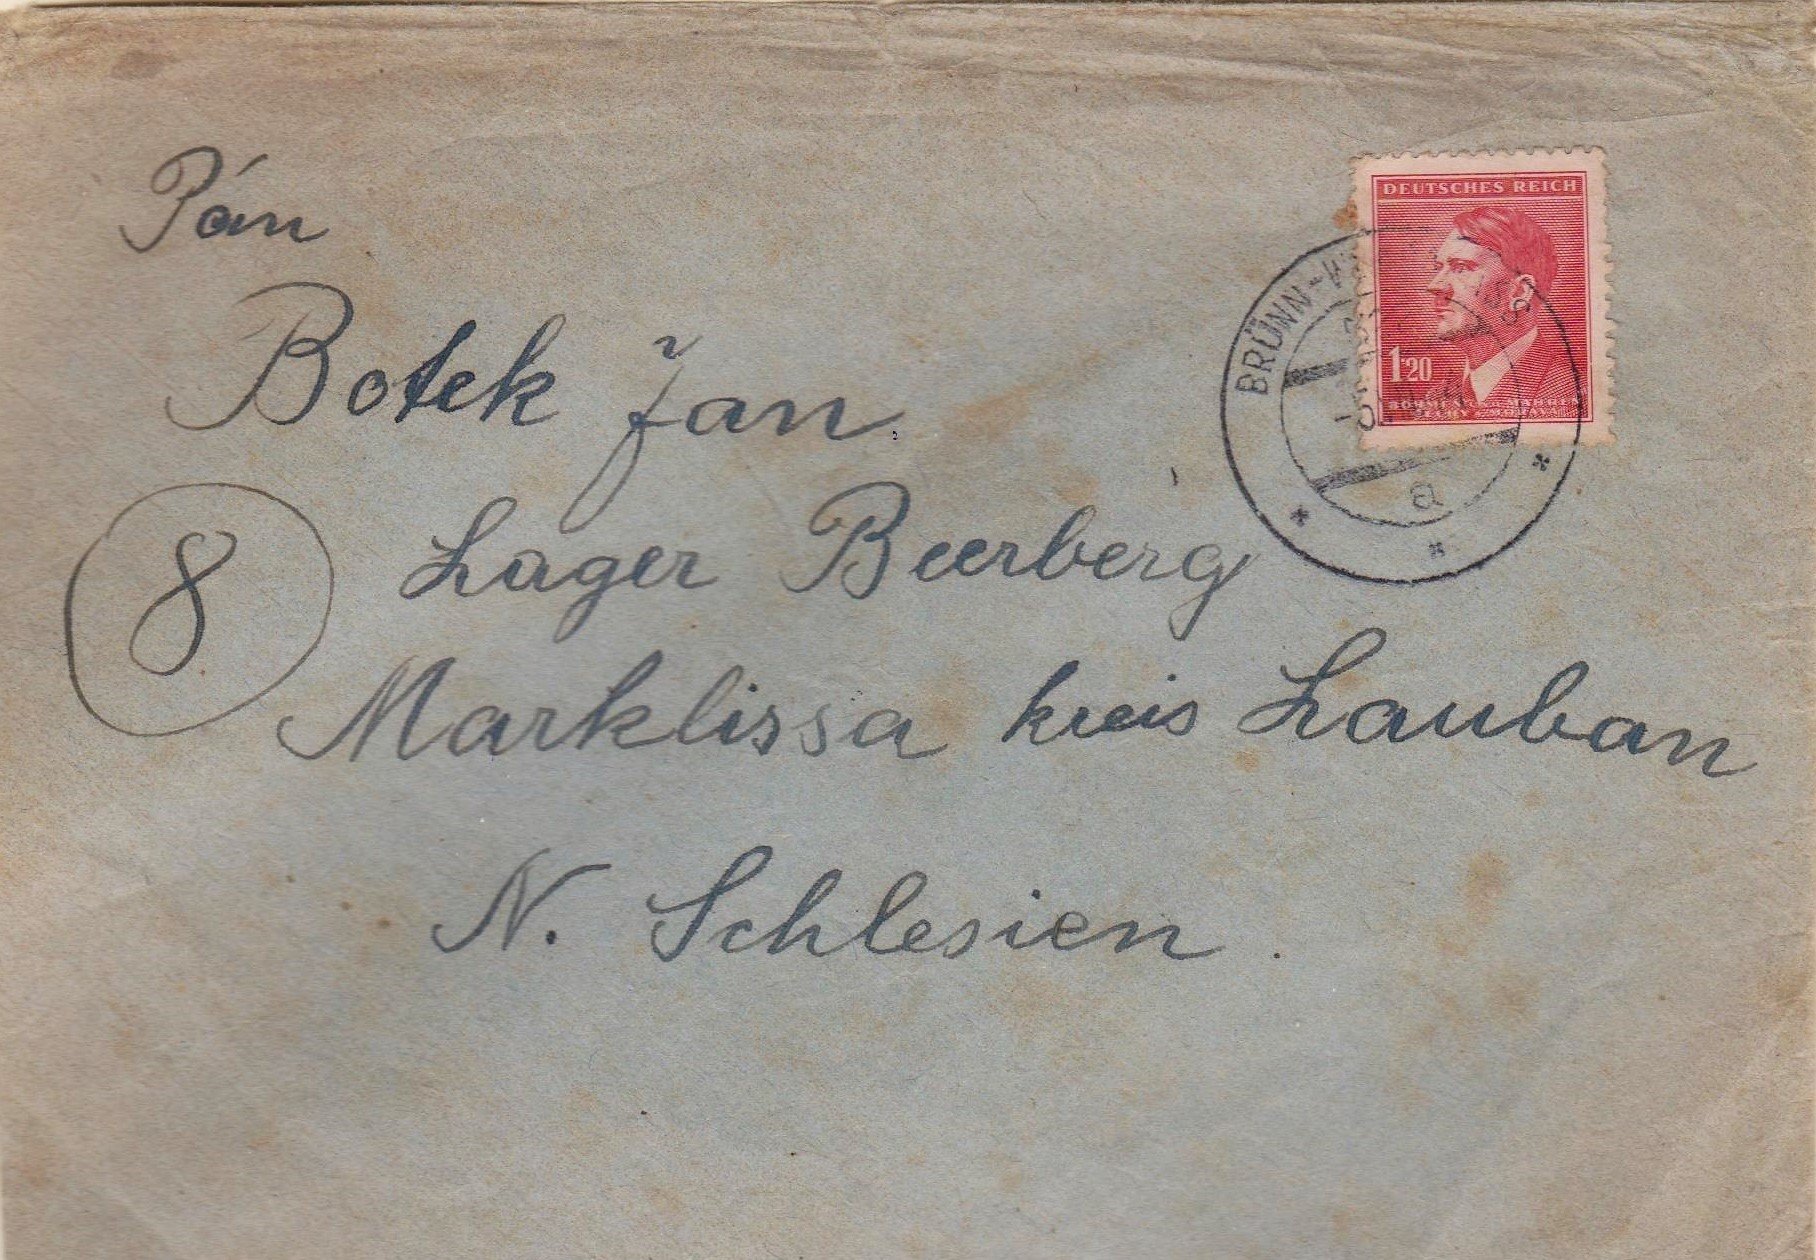 Pán
Botek Jan.
8
Lager Beerberg
Marklissa kreis Lauban
N. Schlesien.
DEUTSCHES REICH
1.20
BÖHMEN UND MÄHREN
ČECHY A MORAVA
BRÜNN-
a